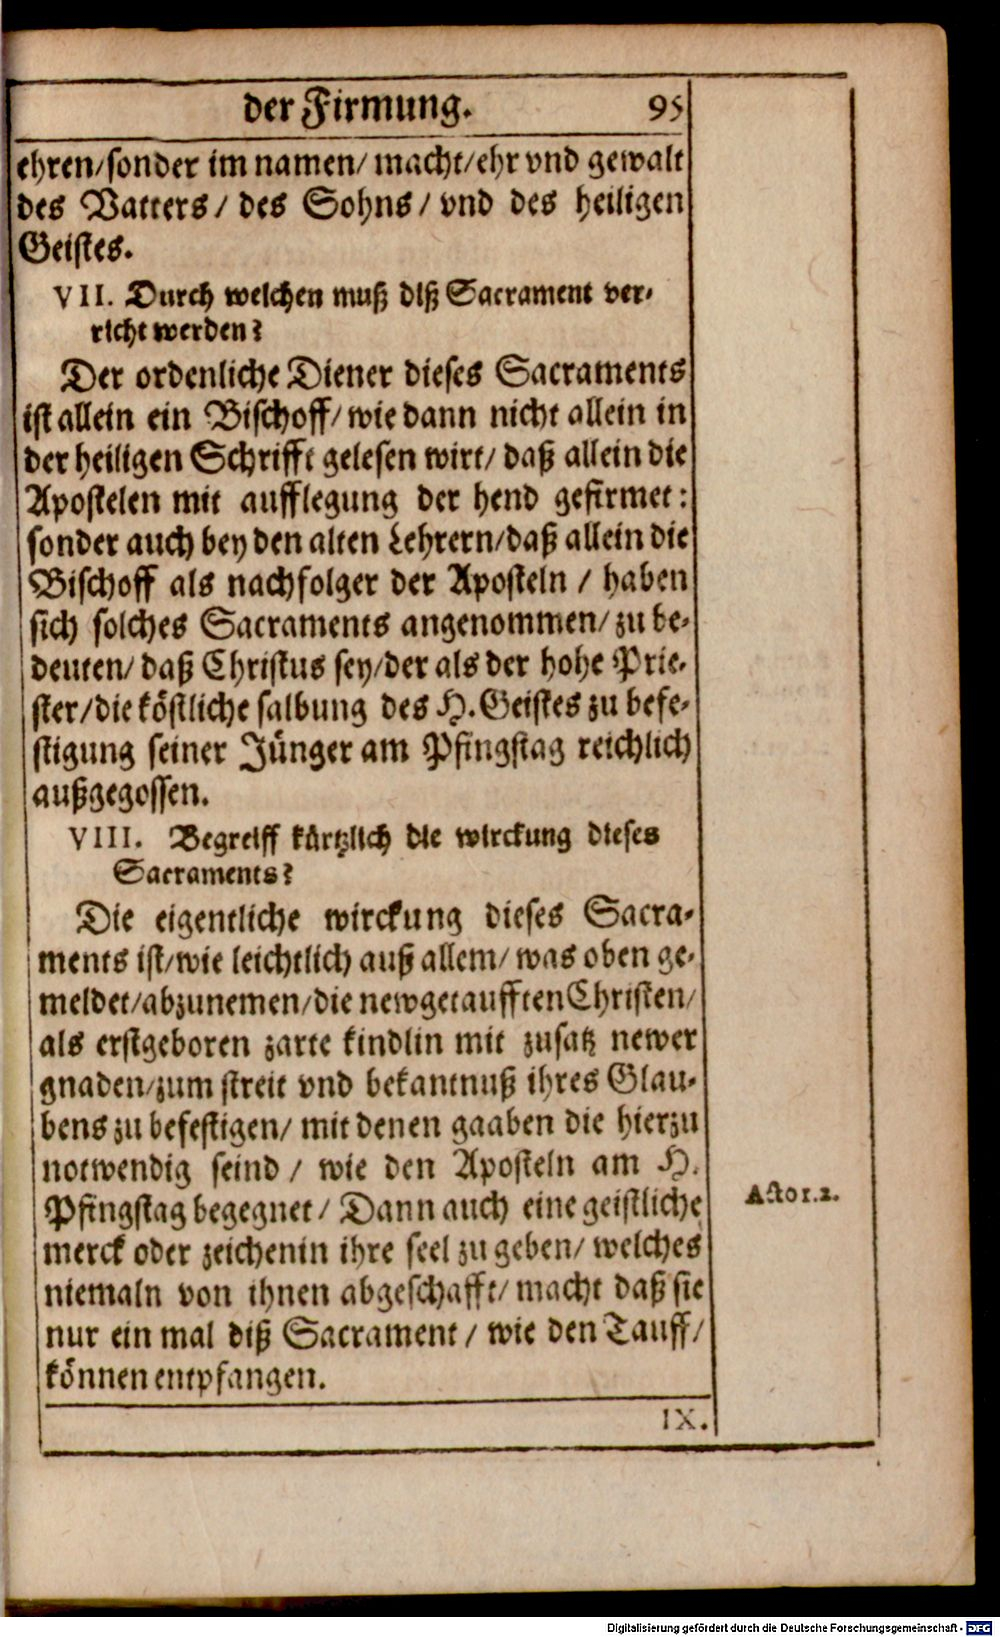 der Firmung. 95
ehren/sonder im namen/ macht/ehr vnd gewalt
des Vatters / des Sohns / vnd des heiligen
Geistes.
VII. Durch welchen muß diß Sacrament ver-
richt werden?
Der ordenliche Diener dieses Sacraments
ist allein ein Bischoff/ wie dann nicht allein in
der heiligen Schrifft gelesen wirt/ daß allein die
Apostelen mit aufflegung der hend gefirmet:
sonder auch bey den alten Lehrern/daß allein die
Bischoff als nachfolger der Aposteln / haben
sich solches Sacraments angenommen/ zu be-
deuten/ daß Christus sey/der als der hohe Prie-
ster/die köstliche salbung des H. Geistes zu befe-
stigung seiner Jünger am Pfingstag reichlich
außgegossen.
VIII. Begreiff kürtzlich die wirckung dieses
Sacraments?
Die eigentliche wirckung dieses Sacra-
ments ist/wie leichtlich auß allem/ was oben ge-
meldet/abzunemen/die newgetaufften Christen/
als erstgeboren zarte kindlin mit zusatz newer
gnaden/zum streit vnd bekantnuß ihres Glau-
bens zu befestigen/ mit denen gaaben die hierzu
notwendig seind / wie den Aposteln am H.
Pfingstag begegnet / Dann auch eine geistliche
merck oder zeichenin ihre seel zu geben/ welches
niemaln von ihnen abgeschafft/ macht daß sie
nur ein mal diß Sacrament / wie den Tauff/
können entpfangen.
Actor.2.
IX.
Digitalisierung gefördert durch die Deutsche Forschungsgemeinschaft - DFG